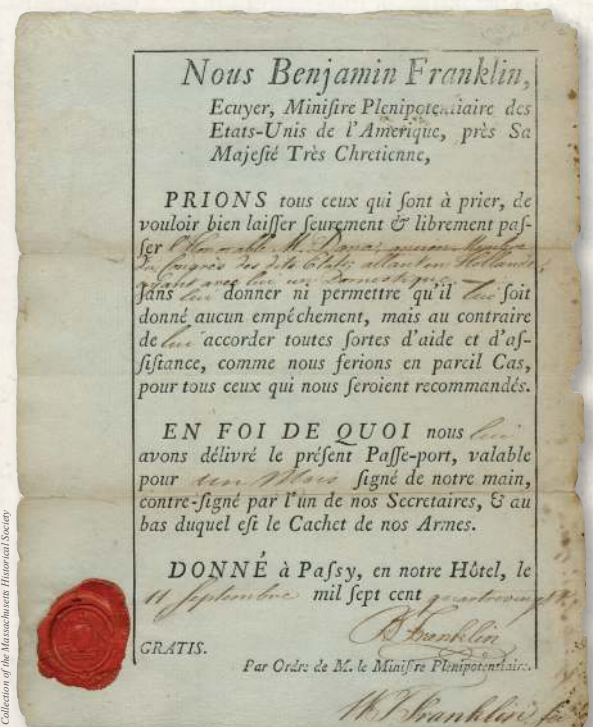 Nous Benjamin Franklin,
Ecuyer, Miniſtre Plenipotentiaire des
Etats-Unis de l'Amerique, près Sa
Majeſté Très Chretienne,
PRIONS tous ceux qui ſont à prier, de
vouloir bien laiſſer ſeurement & librement paſ-
ſer l'honorable M. Dana, ancien Membre
du Congrès des dits Etats, allant en Hollande,
ayant avec lui un Domestique,
ſans lui donner ni permettre qu'il lui ſoit
donné aucun empéchement, mais au contraire
de lui accorder toutes ſortes d'aide et d'aſ-
ſiſtance, comme nous ferions en pareil Cas,
pour tous ceux qui nous ſeroient recommandés.
EN FOI DE QUOI nous lui
avons délivré le préſent Paſſe-port, valable
pour un Mois ſigné de notre main,
contre-ſigné par l'un de nos Secretaires, & au
bas duquel eſt le Cachet de nos Armes.
DONNÉ à Paſsy, en notre Hôtel, le
11 Septembre mil ſept cent quatrevingt
B Franklin
GRATIS.
Par Ordre de M. le Miniſtre Plenipotentiaire.
W. T. Franklin
Collection of the Massachusetts Historical Society